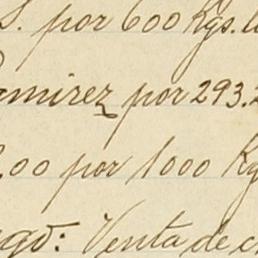 S. por 600 Kgs.
amirez por 293.2
.00 por 1000 Kg
ago: Venta de c